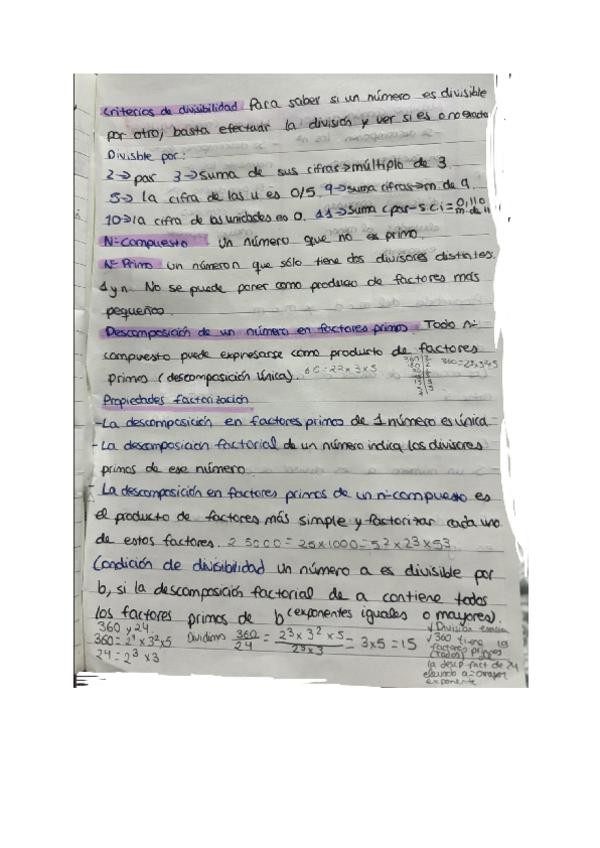 Criterios de divisibilidad Para saber si un número es divisible
por otro, basta efectuar la división y ver si es o no exacta
Divisble por:
2→par 3→suma de sus cifras→múltiplo de 3.
5→ la cifra de las u es 0/5. 9→suma cifras→m. de 9.
10→la cifra de las unidades es 0. 11→suma c par-s.c.i = 0, 11 o m. de 11
Nº Compuesto Un número que no es primo.
Nº Primo Un número n que sólo tiene dos divisores distintos.
1 y n. No se puede poner como producto de factores más
pequeños.
Descomposición de un número en factores primos. Todo nº
compuesto puede expresarse como producto de factores
primos (descomposición única).
Propiedades factorización
-La descomposición en factores primos de 1 número es única.
-La descomposición factorial de un número indica los divisores
primos de ese número.
- La descomposición en factores primos de un nº compuesto es
el producto de factores más simple y factorizar cada uno
de estos factores. 2 5000 = 25x1000 = 5² x 2³ x 5³.
Condición de divisibilidad un número a es divisible por
b, si la descomposición factorial de a contiene todos
los factores primos de b (exponentes iguales o mayores).
360 y 24.
360 = 2³ x 3² x 5 Dividimos 360/24 = 2³ x 3² x 5 / 2³ x 3 = 3 x 5 = 15
24 = 2³ x 3
√ 360 tiene los
factores primos
(todos) de
la desc. fact de 24
elevado a = o mayor
exponente